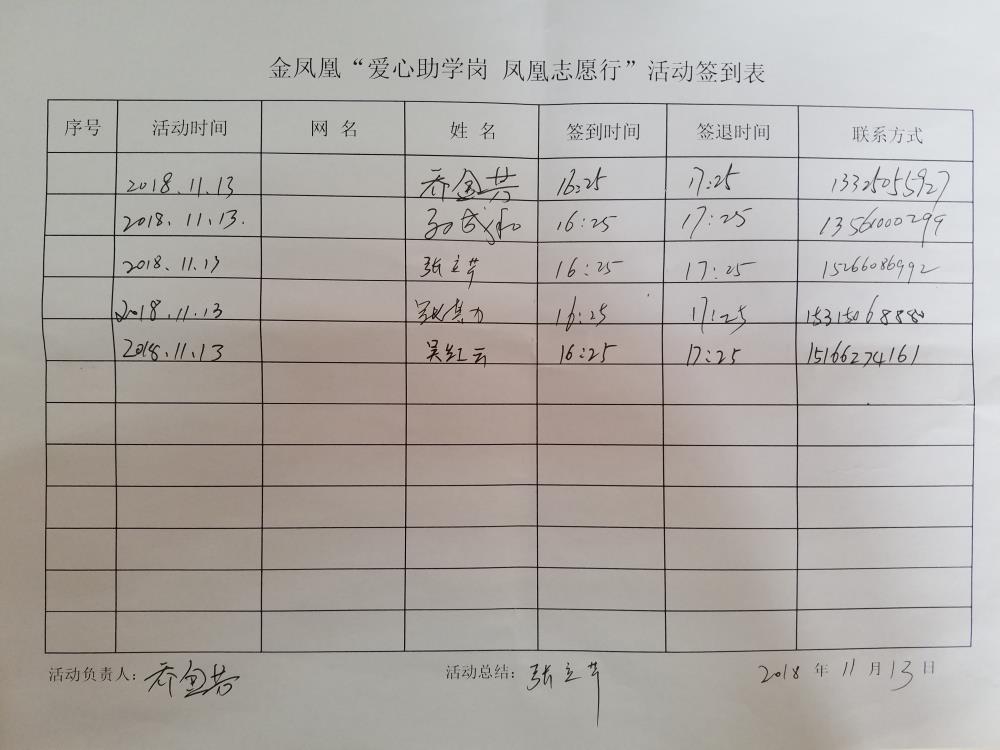 金凤凰“爱心助学岗 凤凰志愿行”活动签到表
序号 活动时间 网 名 姓 名 签到时间 签退时间 联系方式
2018.11.13 乔金芳 16:25 17:25 13325055927
2018.11.13. 16:25 17:25 13561000299
2018.11.13 张立芹 16:25 17:25 15266086992
2018.11.13 16:25 17:25 15315068880
2018.11.13 吴红云 16:25 17:25 15166274161
活动负责人：乔金芳 活动总结：张立芹 2018 年 11 月 13 日